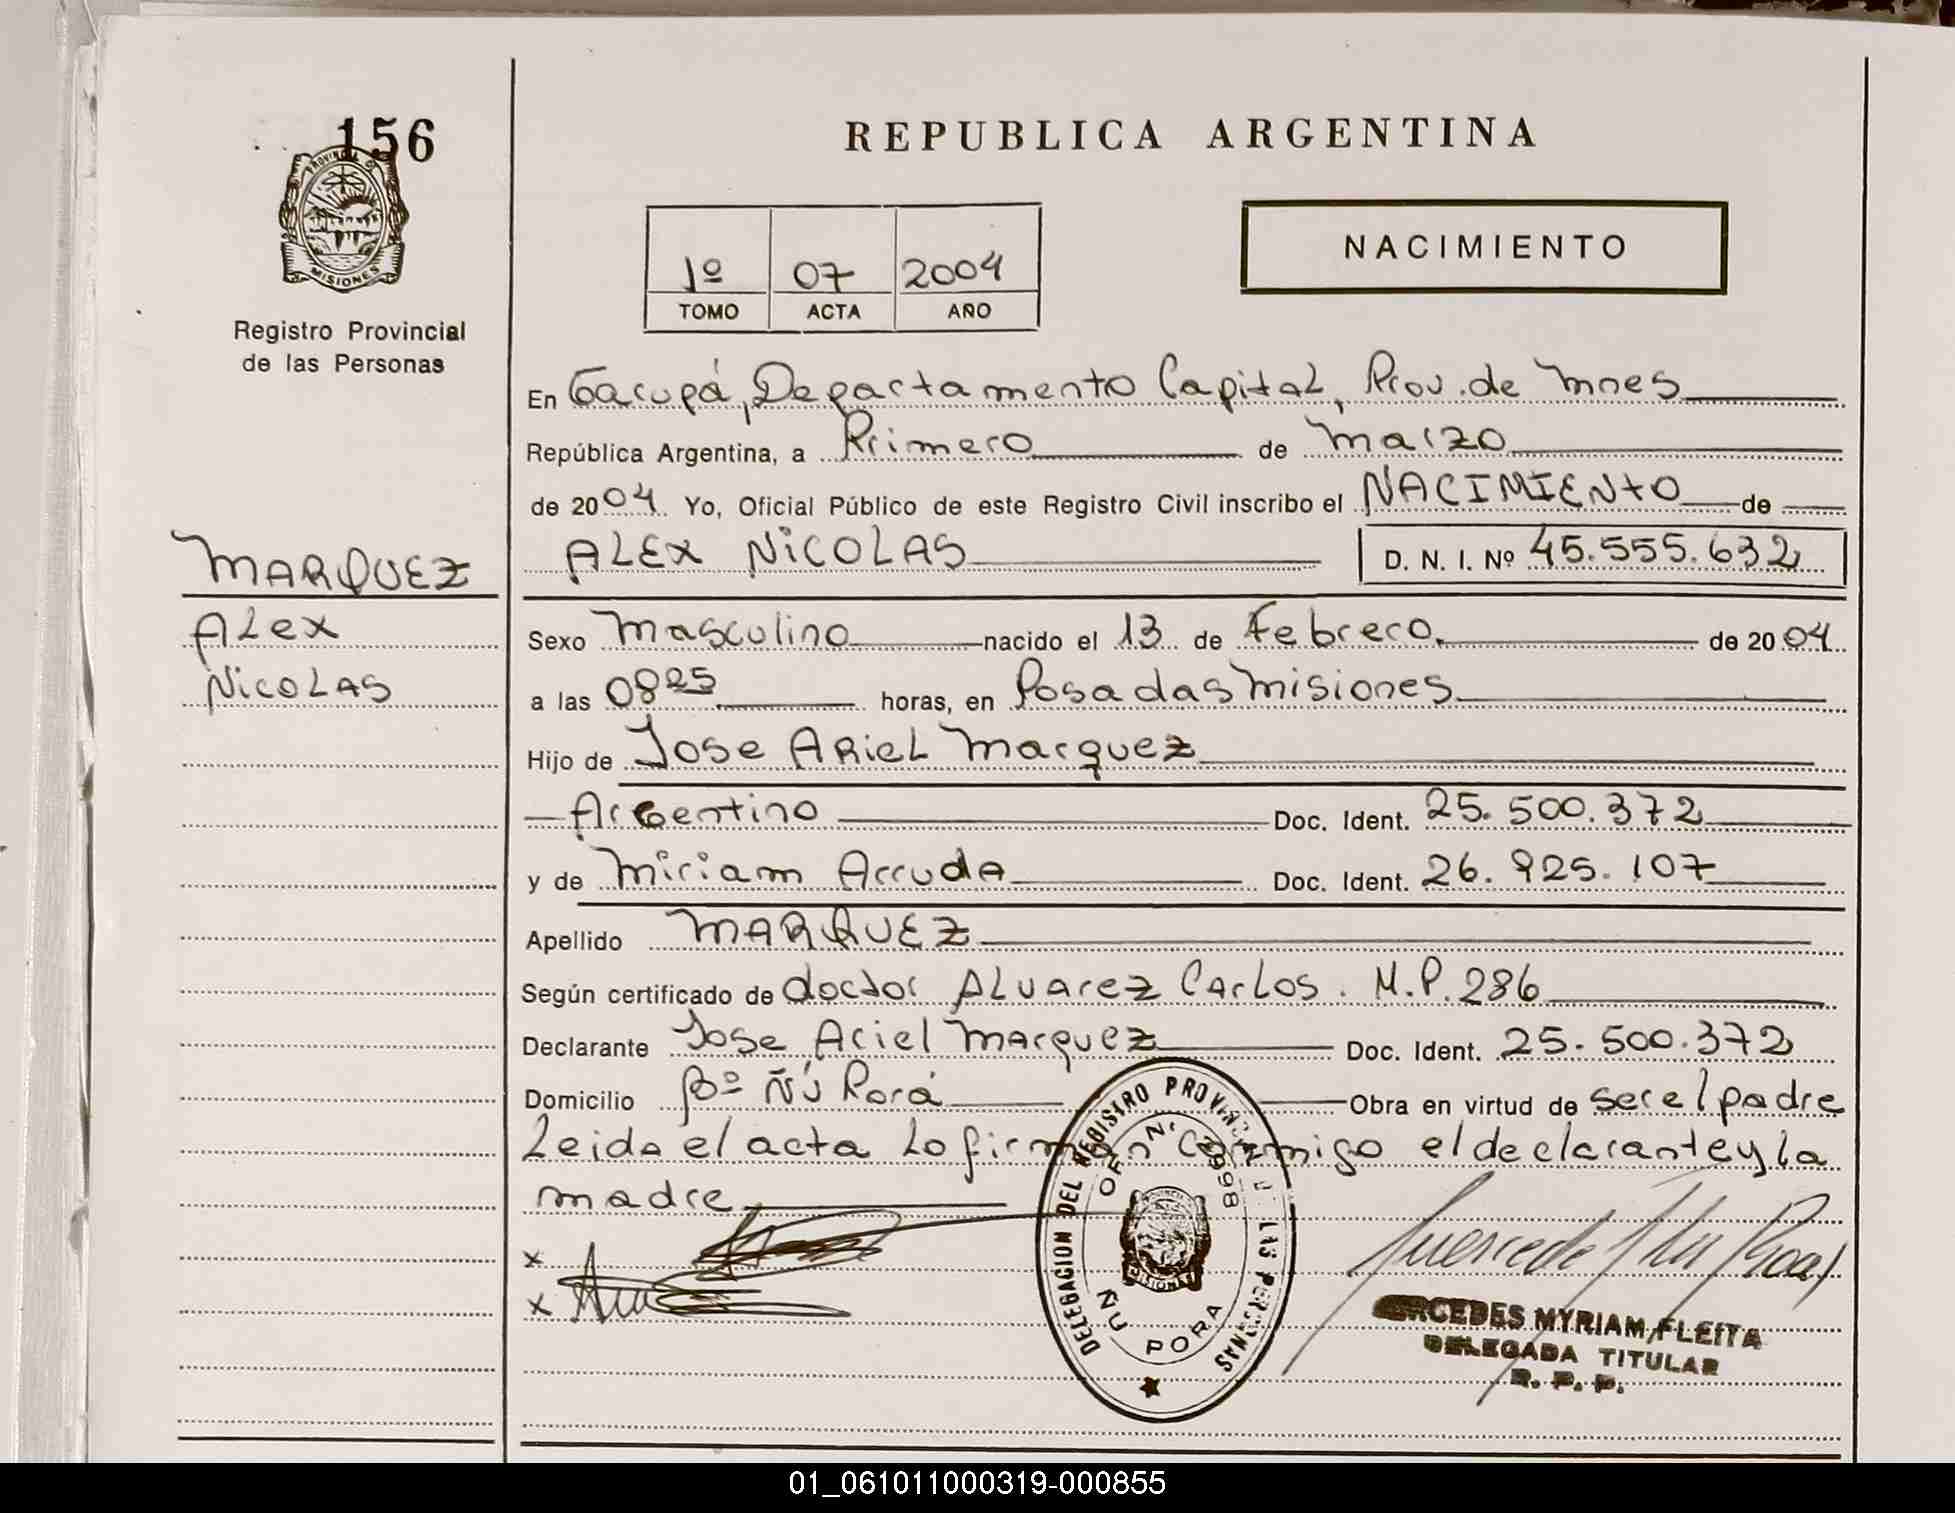 156
PROVINCIA DE
MISIONES
Registro Provincial
de las Personas
REPUBLICA ARGENTINA
NACIMIENTO
1º 07 2004
TOMO ACTA AÑO
En Garupá, Departamento Capital, Prov. de Mnes
República Argentina, a Primero de Marzo
de 2004 Yo, Oficial Público de este Registro Civil inscribo el NACIMIENTO de
ALEX NICOLAS D. N. I. Nº 45.555.632
MARQUEZ
Alex
NICOLAS
Sexo Masculino nacido el 13 de Febrero. de 2004
a las 0825 horas, en Posadas Misiones
Hijo de Jose Ariel Marquez
Argentino Doc. Ident. 25.500.372
y de Miriam Arruda Doc. Ident. 26.925.107
Apellido MARQUEZ
Según certificado de doctor Alvarez Carlos. M.P. 286
Declarante Jose Ariel Marquez Doc. Ident. 25.500.372
Domicilio Bº Ñú Porá Obra en virtud de ser el padre
Leida el acta Lo firman conmigo el declarante y la
madre
x
x
DELEGACION DEL REGISTRO PROVINCIAL DE LAS PERSONAS
OF. Nº 2998
MISIONES
ÑU PORA
MERCEDES MYRIAM FLEITA
DELEGADA TITULAR
R. P. P.
01_061011000319-000855